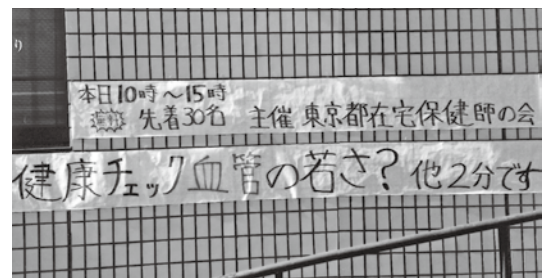 り
本日10時～15時
先着30名 主催 東京都在宅保健師の会
健康チェック血管の若さ?他2分です